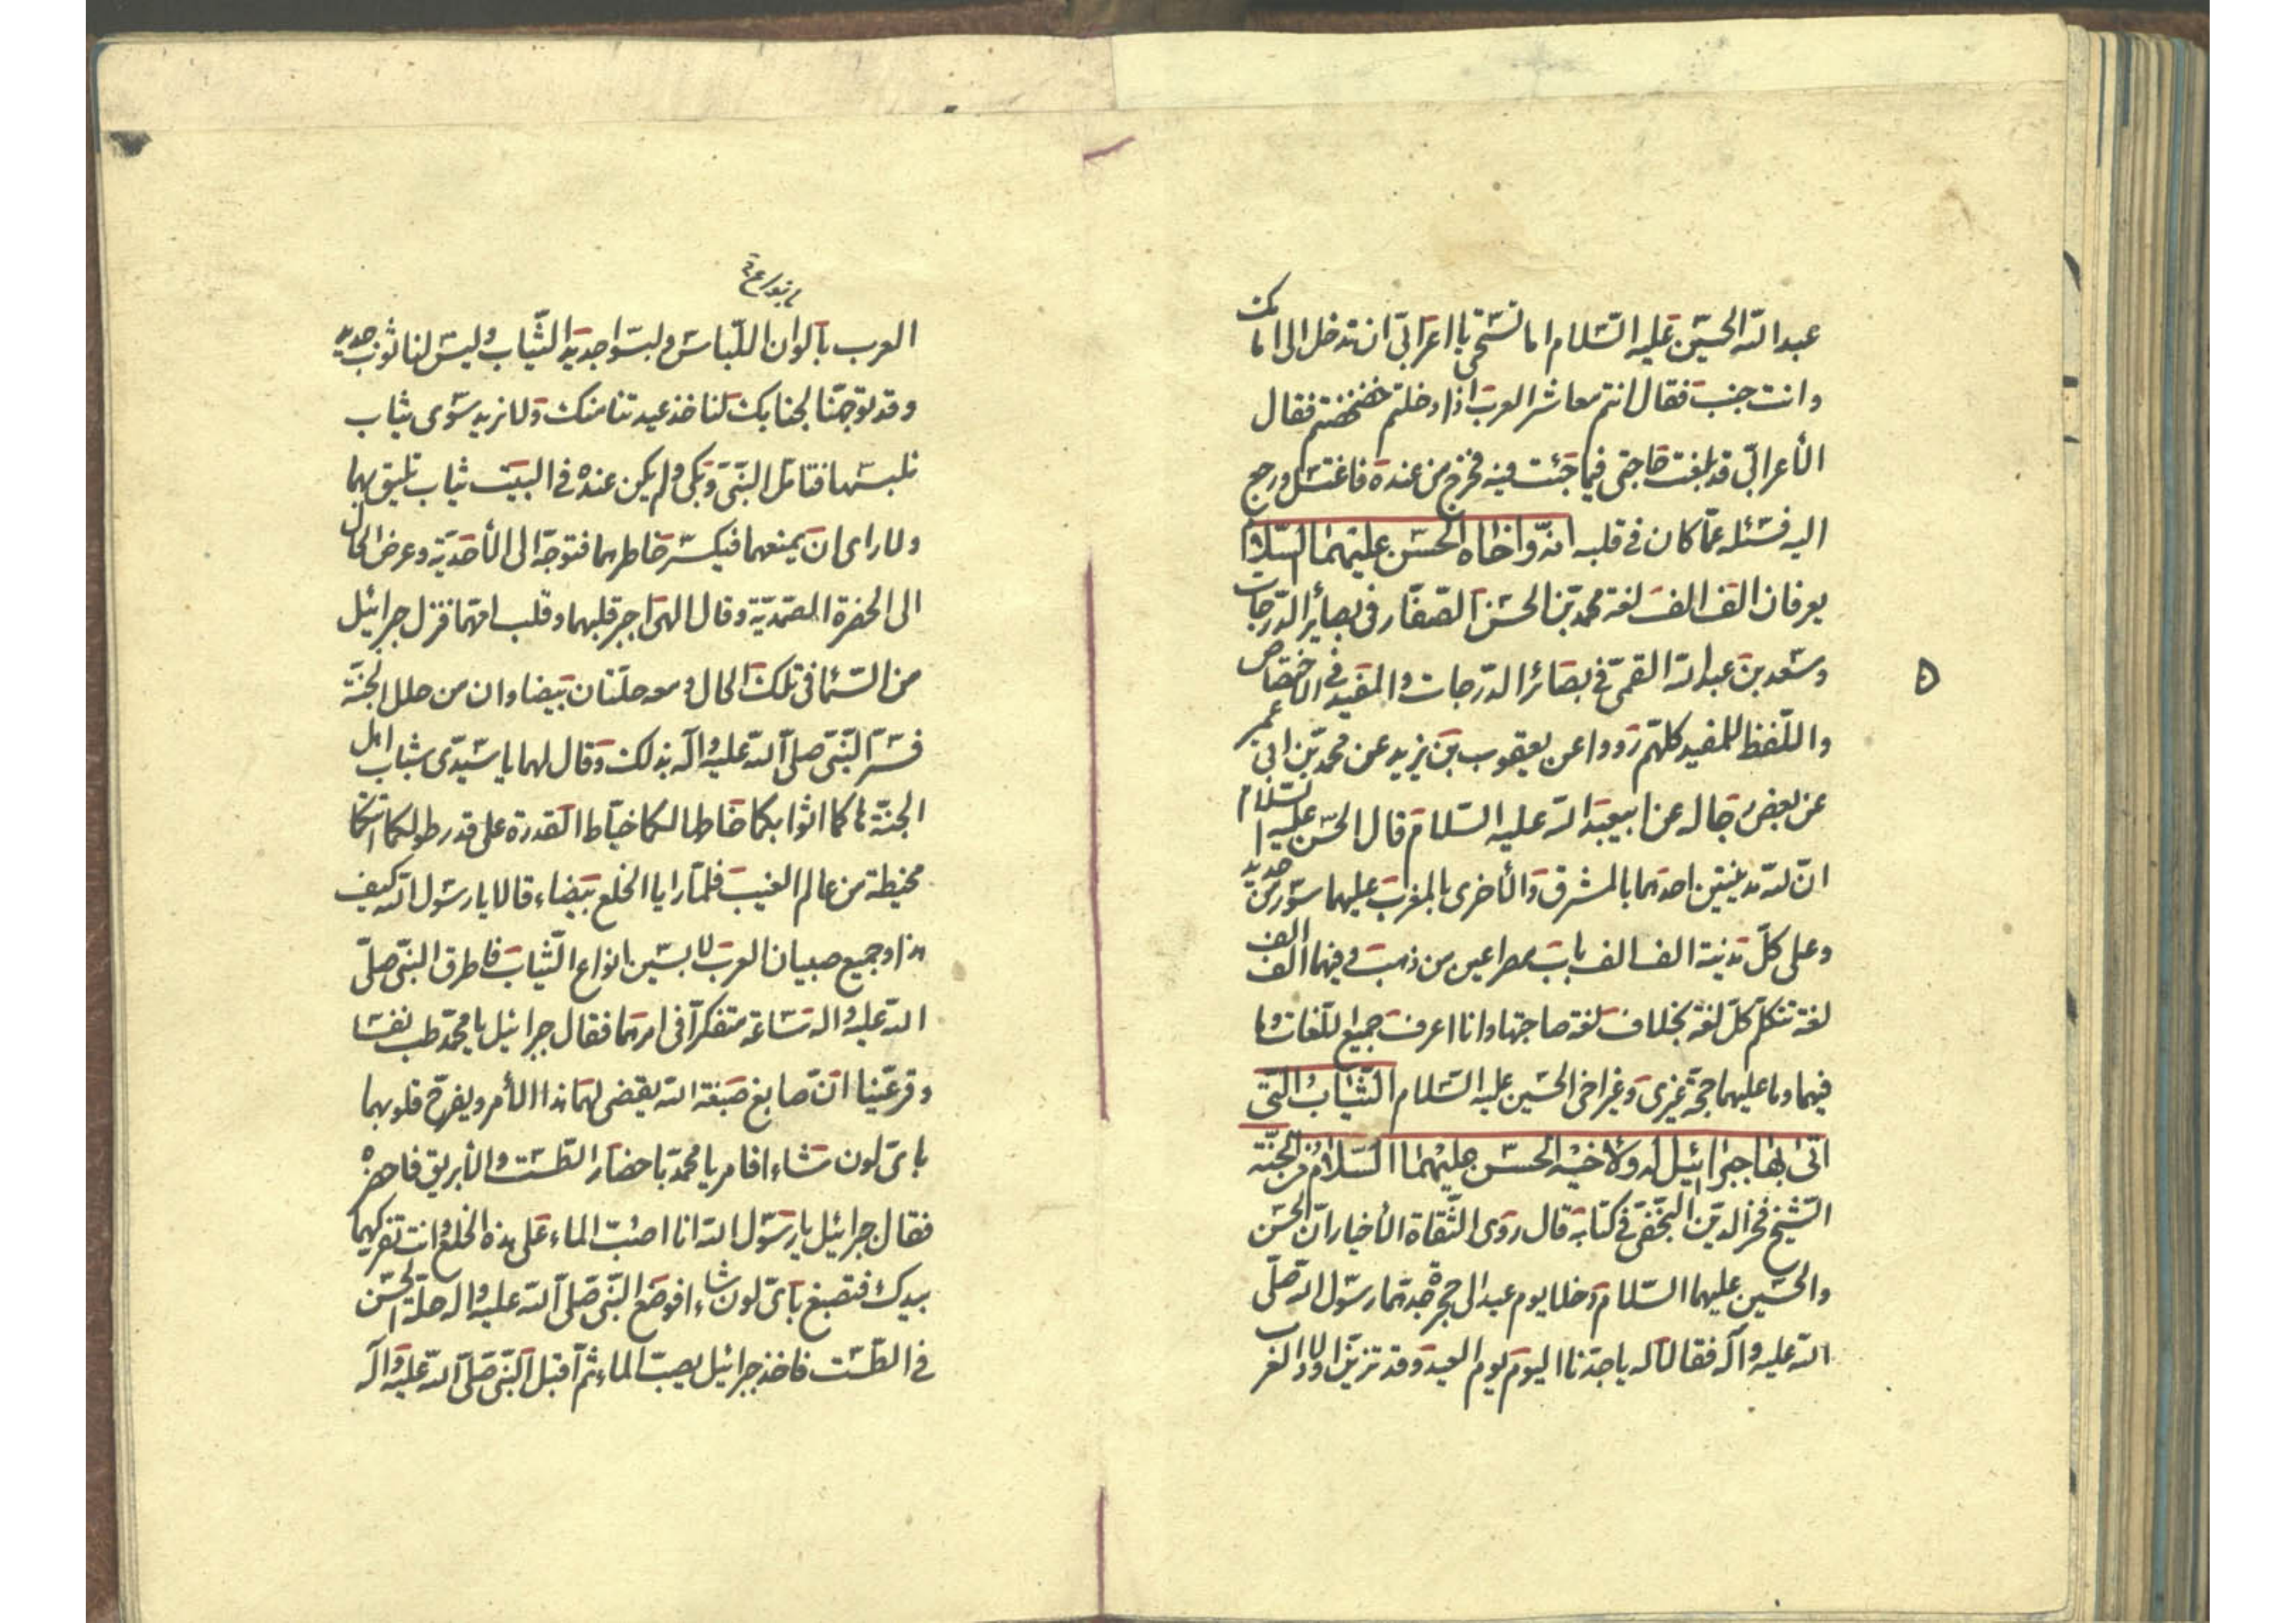 عبد الله الحسين عليه السلام اما تستحيي يا اعرابي ان تدخل الى امامك
وانت جنب فقال انتم معاشر العرب اذا دخلتم خضخضتم فقال
الأعرابي قد بلغت حاجتي فيما جئت فيه فخرج من عنده فاغتسل ورجع
اليه فسئله عما كان في قلبه انه واخاه الحسن عليهما السلام
يعرفان الف الف لغة محمد بن الحسن الصفار في بصائر الدرجات
وسعد بن عبد الله القمي في بصائر الدرجات والمفيد في الاختصاص
۵
واللفظ للمفيد كلهم رووا عن يعقوب بن يزيد عن محمد بن ابي عمير
عن بعض رجاله عن ابيعبد الله عليه السلام قال الحسن عليه السلام
ان لله مدينتين احدهما بالمشرق والأخرى بالمغرب عليهما سور من حديد
وعلى كل مدينة الف الف باب بمصراعين من ذهب وفيهما الف الف
لغة تتكلم كل لغة بخلاف لغة صاحبها وانا اعرف جميع اللغات وما
فيهما وما عليهما حجة غيري وغير اخي الحسين عليه السلام الثياب التي
اتى بها جبرائيل له ولاخيه الحسن عليهما السلام من الجنة
الشيخ فخر الدين النجفي في كتابه قال روى الثقاة الأخيار ان الحسن
والحسين عليهما السلام دخلا يوم عيد الى حجرة جدهما رسول الله صلى
الله عليه وآله فقالا له يا جدنا اليوم يوم العيد وقد تزين اولاد العرب
العرب بألوان اللباس ولبسوا جديد الثياب وليس لنا ثوب جديد
وقد توجهنا لجنابك لنا خذ عيدتنا منك ولا نريد سوى ثياب
نلبسها فتامل النبي وبكى ولم يكن عنده في البيت ثياب تليق بهما
ولا راى ان يمنعهما فيكسر خاطرهما فتوجه الى الأحدية وعرض الحال
الى الحضرة الصمدية وقال الهي اجبر قلبهما وقلب امهما فنزل جبرائيل
من السماء في تلك الحال ومعه حلتان بيضاوان من حلل الجنة
فسر النبي صلى الله عليه وآله بذلك وقال لهما يا سيدى شباب اهل
الجنة هاكما اثوابكما خاطها لكما خياط القدرة على قدر طولكما اتتكما
مخيطة من عالم الغيب فلما رايا الخلع بيضاء قالا يا رسول الله كيف
هذا وجميع صبيان العرب لابسين انواع الثياب فاطرق النبي صلى
الله عليه واله ساعة متفكرا في امرهما فقال جبرائيل يا محمد طب نفسا
وقر عينا ان صابغ صبغة الله يقضي لهما هذا الأمر ويفرح قلوبهما
باي لون شاءا فامر يا محمد باحضار الطشت والأبريق فاحضره
فقال جبرائيل يا رسول الله انا اصب الماء على هذه الخلع وانت تفركهما
بيدك فتصبغ باي لون شاءا فوضع النبي صلى الله عليه واله حلة الحسن
في الطشت فاخذ جبرائيل يصب الماء ثم اقبل النبي صلى الله عليه وآله